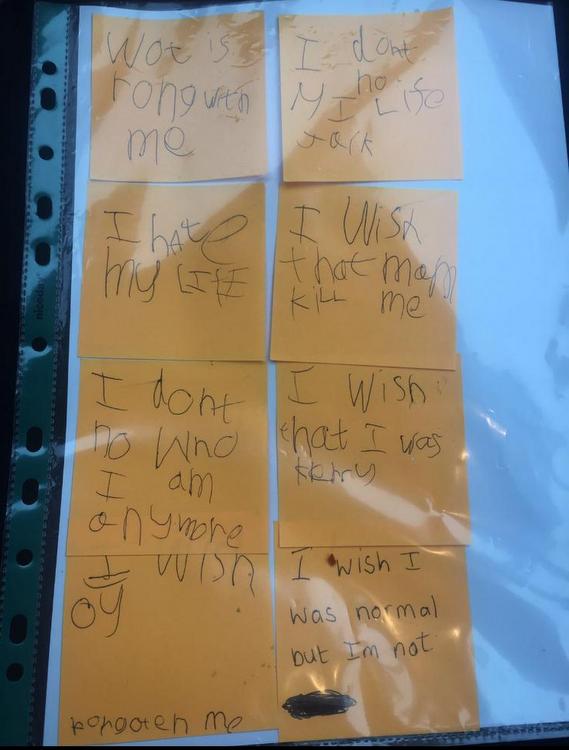 Wot is
rong with
me
I dont
no
My I Life
I hate
my LIFE
I Wish
that mam
kill me
I dont
no Who
I am
anymore
I Wish
that I was
I wish
oy
me
I wish I
was normal
but Im not